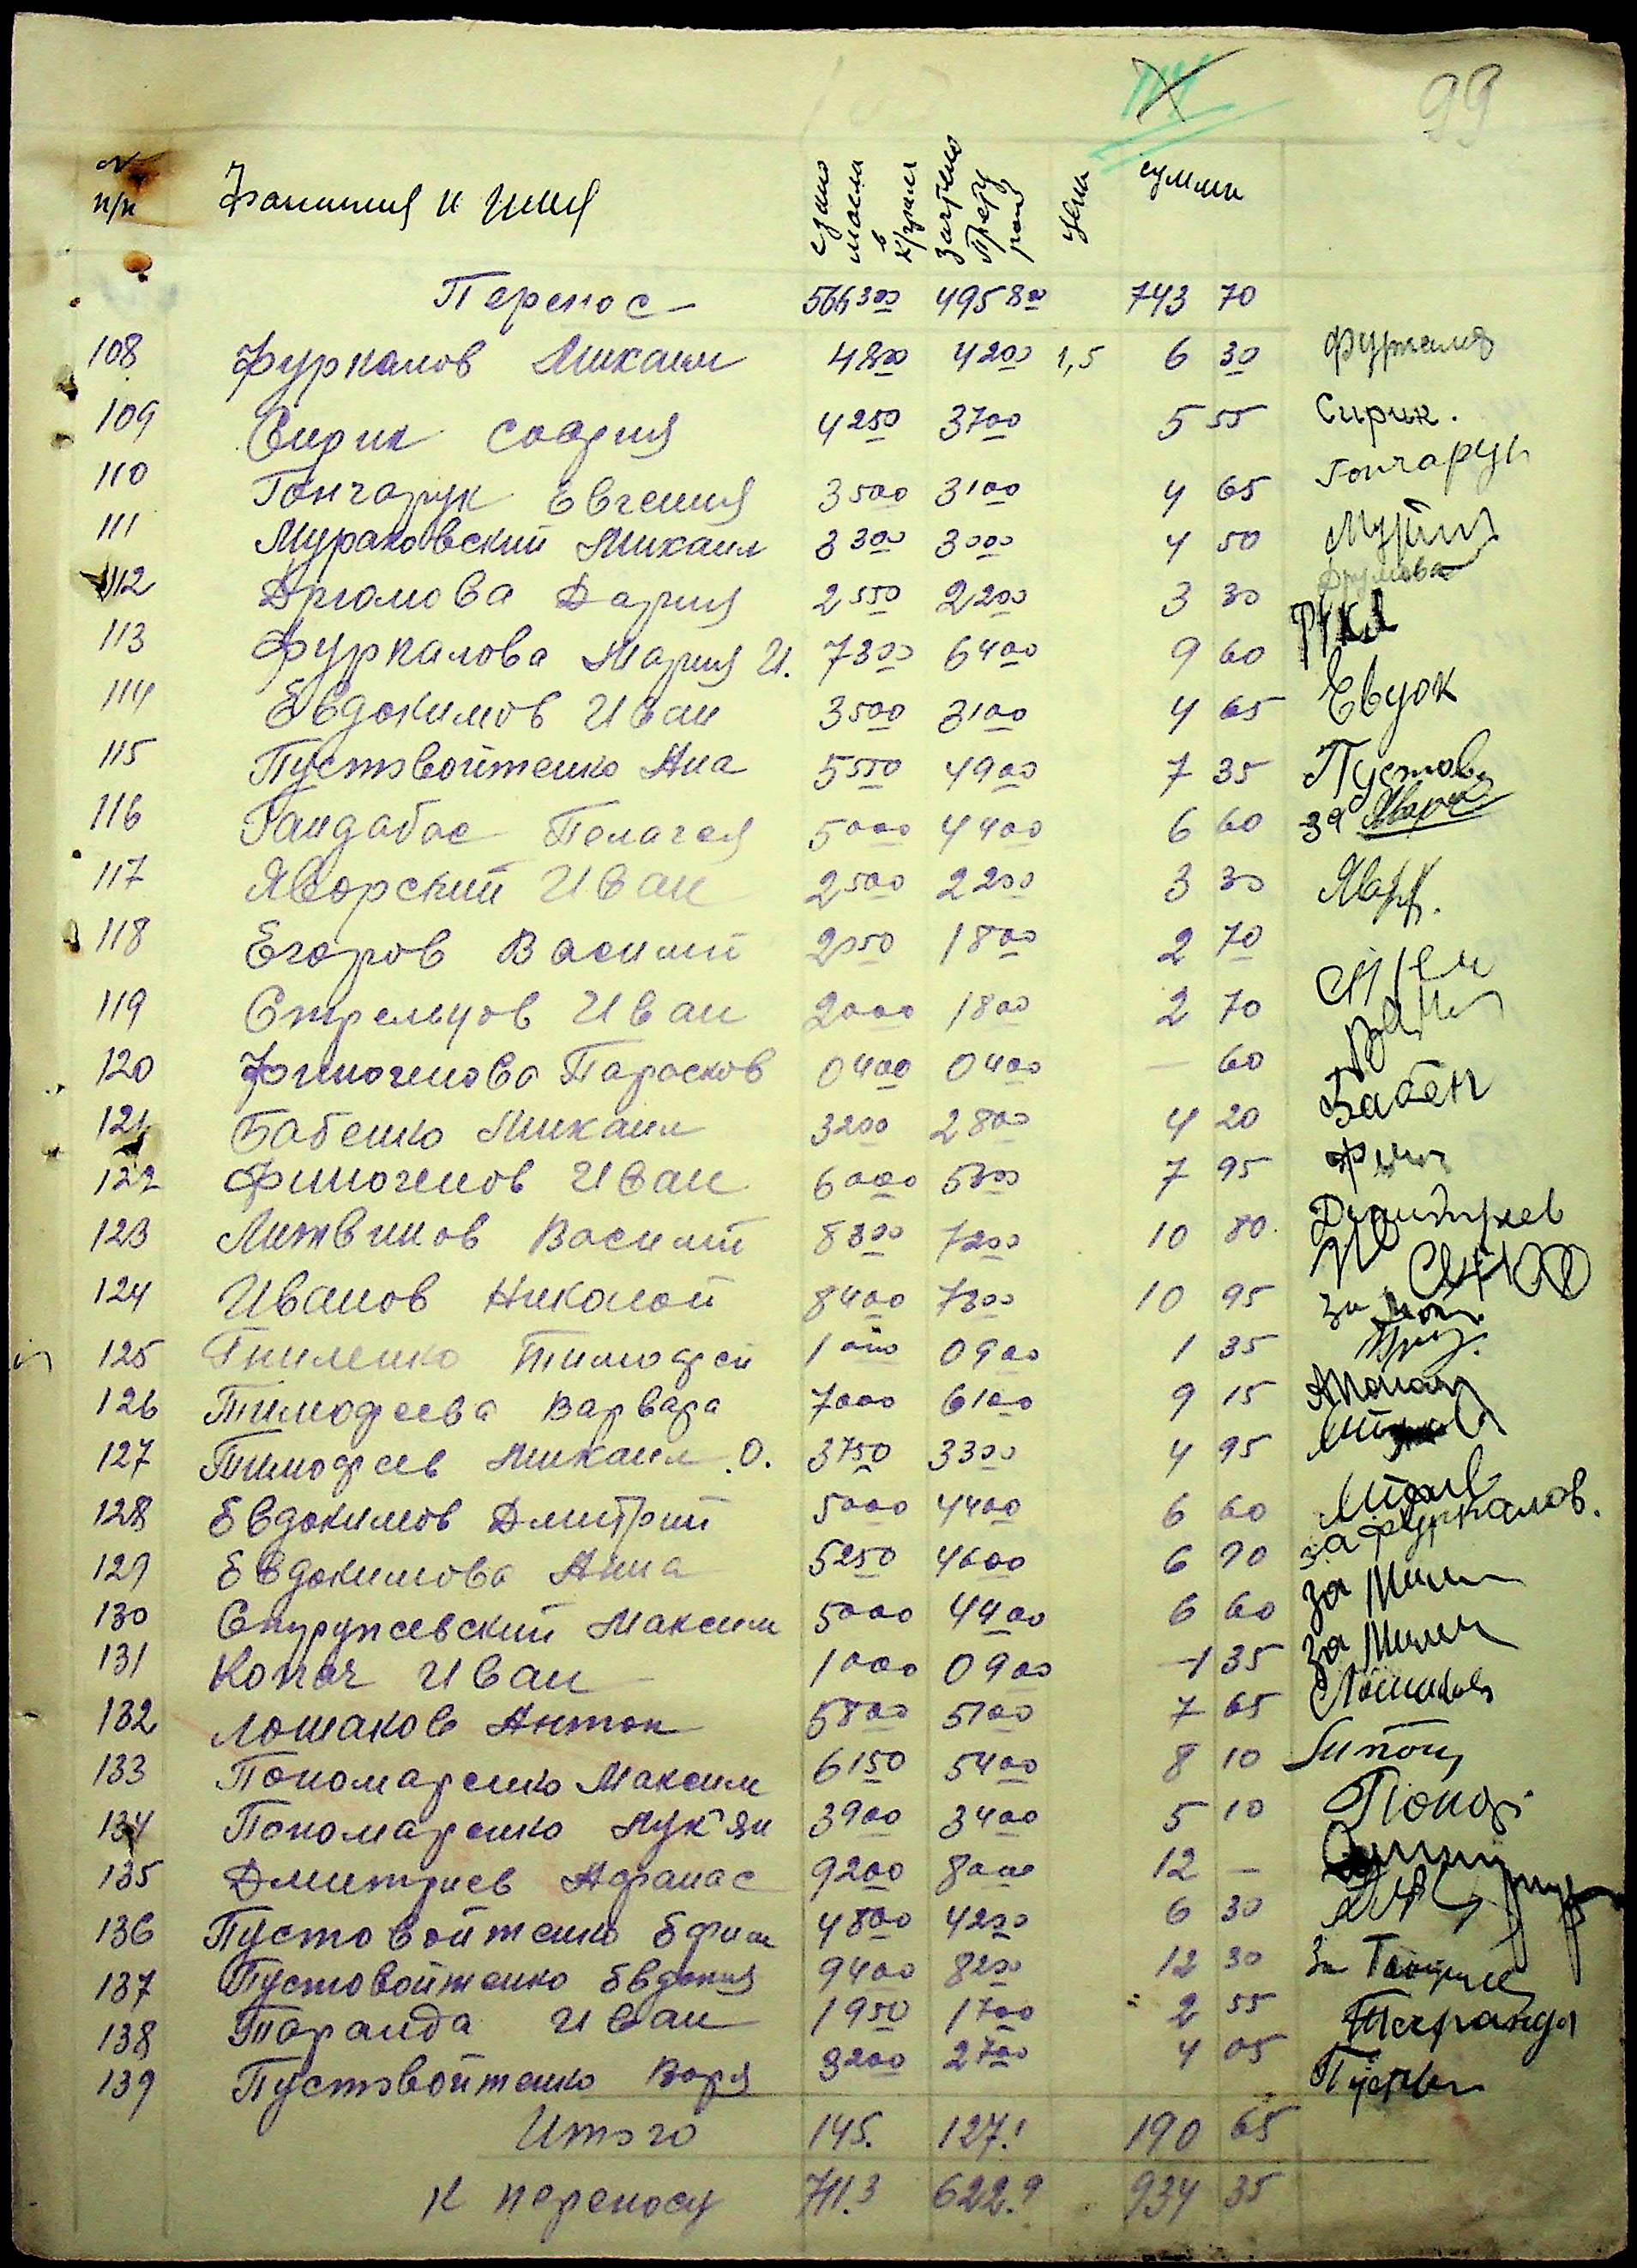 99
№ п/н Фамилия и Имя сдано масла в к/грамм зачтено Цена сумма
Перенос 566300 495800 743 70
108 Фуркалов Михаил 4800 4200 1,5 6 30
109 Сирик София 4250 3700 5 55 Сирик.
110 Гончарук Евгения 3500 3100 4 65 Гончарук
111 Мураховский Михаил 3300 3000 4 50
112 Дргомова Дария 2550 2200 3 30
113 Фуркалова Мария И. 7300 6400 9 60
114 Евдокимов Иван 3500 3100 4 65 Евдок
115 Пустовойтенко Ана 5550 4900 7 35 Пустов
116 Гандабас Пелагея 5000 4400 6 60 за
117 Яворский Иван 2500 2200 3 30 Явор.
118 Егоров Василий 2050 1800 2 70
119 Стрельцов Иван 2000 1800 2 70
120 Финогенова Парасков 0400 0400 — 60
121 Бабенко Михаил 3200 2800 4 20 Бабен
122 Финогенов Иван 6000 5300 7 95
123 Литвинов Василий 8300 7200 10 80
124 Иванов Николай 8400 7300 10 95 за
125 Гниленко Тимофей 1000 0900 1 35
126 Тимофеева Варвара 7000 6100 9 15
127 Тимофеев Михаил О. 3750 3300 4 95
128 Евдокимов Дмитрий 5000 4400 6 60
129 Евдокимова Анна 5250 4600 6 90 за Фуркалов.
130 Стурчевский Максим 5000 4400 6 60 за
131 Копач Иван 1000 0900 1 35 за
132 Лошаков Антон 5800 5100 7 65 Лошаков
133 Пономаренко Максим 6150 5400 8 10
134 Пономаренко Лук"ян 3900 3400 5 10 Поном
135 Дмитриев Афанас 9200 8000 12 —
136 Пустовойтенко Ефим 4800 4200 6 30
137 Пустовойтенко Евдокия 9400 8200 12 30 За
138 Таранда Иван 1950 1700 2 55 Таранда
139 Пустовойтенко Варя 3200 2700 4 05
Итого 145. 127.1 190 65
К переносу 711.3 622.9 934 35